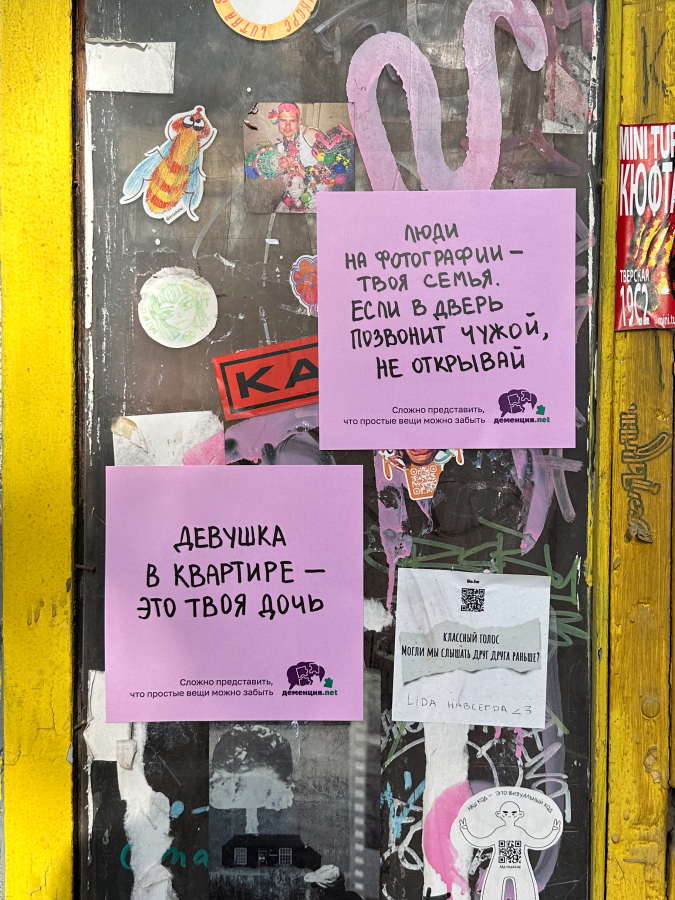 LUTRA
MINI TUR
КЮФТА
ТВЕРСКАЯ
19С2
ЛЮДИ
НА ФОТОГРАФИИ –
ТВОЯ СЕМЬЯ.
ЕСЛИ В ДВЕРЬ
ПОЗВОНИТ ЧУЖОЙ,
НЕ ОТКРЫВАЙ
Сложно представить,
что простые вещи можно забыть
деменция.net
КА
ДЕВУШКА
В КВАРТИРЕ –
ЭТО ТВОЯ ДОЧЬ
Сложно представить,
что простые вещи можно забыть
деменция.net
КЛАССНЫЙ ГОЛОС
МОГЛИ МЫ СЛЫШАТЬ ДРУГ ДРУГА РАНЬШЕ?
LIDA НАВСЕГДА <3
НАШ КОД – ЭТО ВИЗУАЛЬНЫЙ КОД